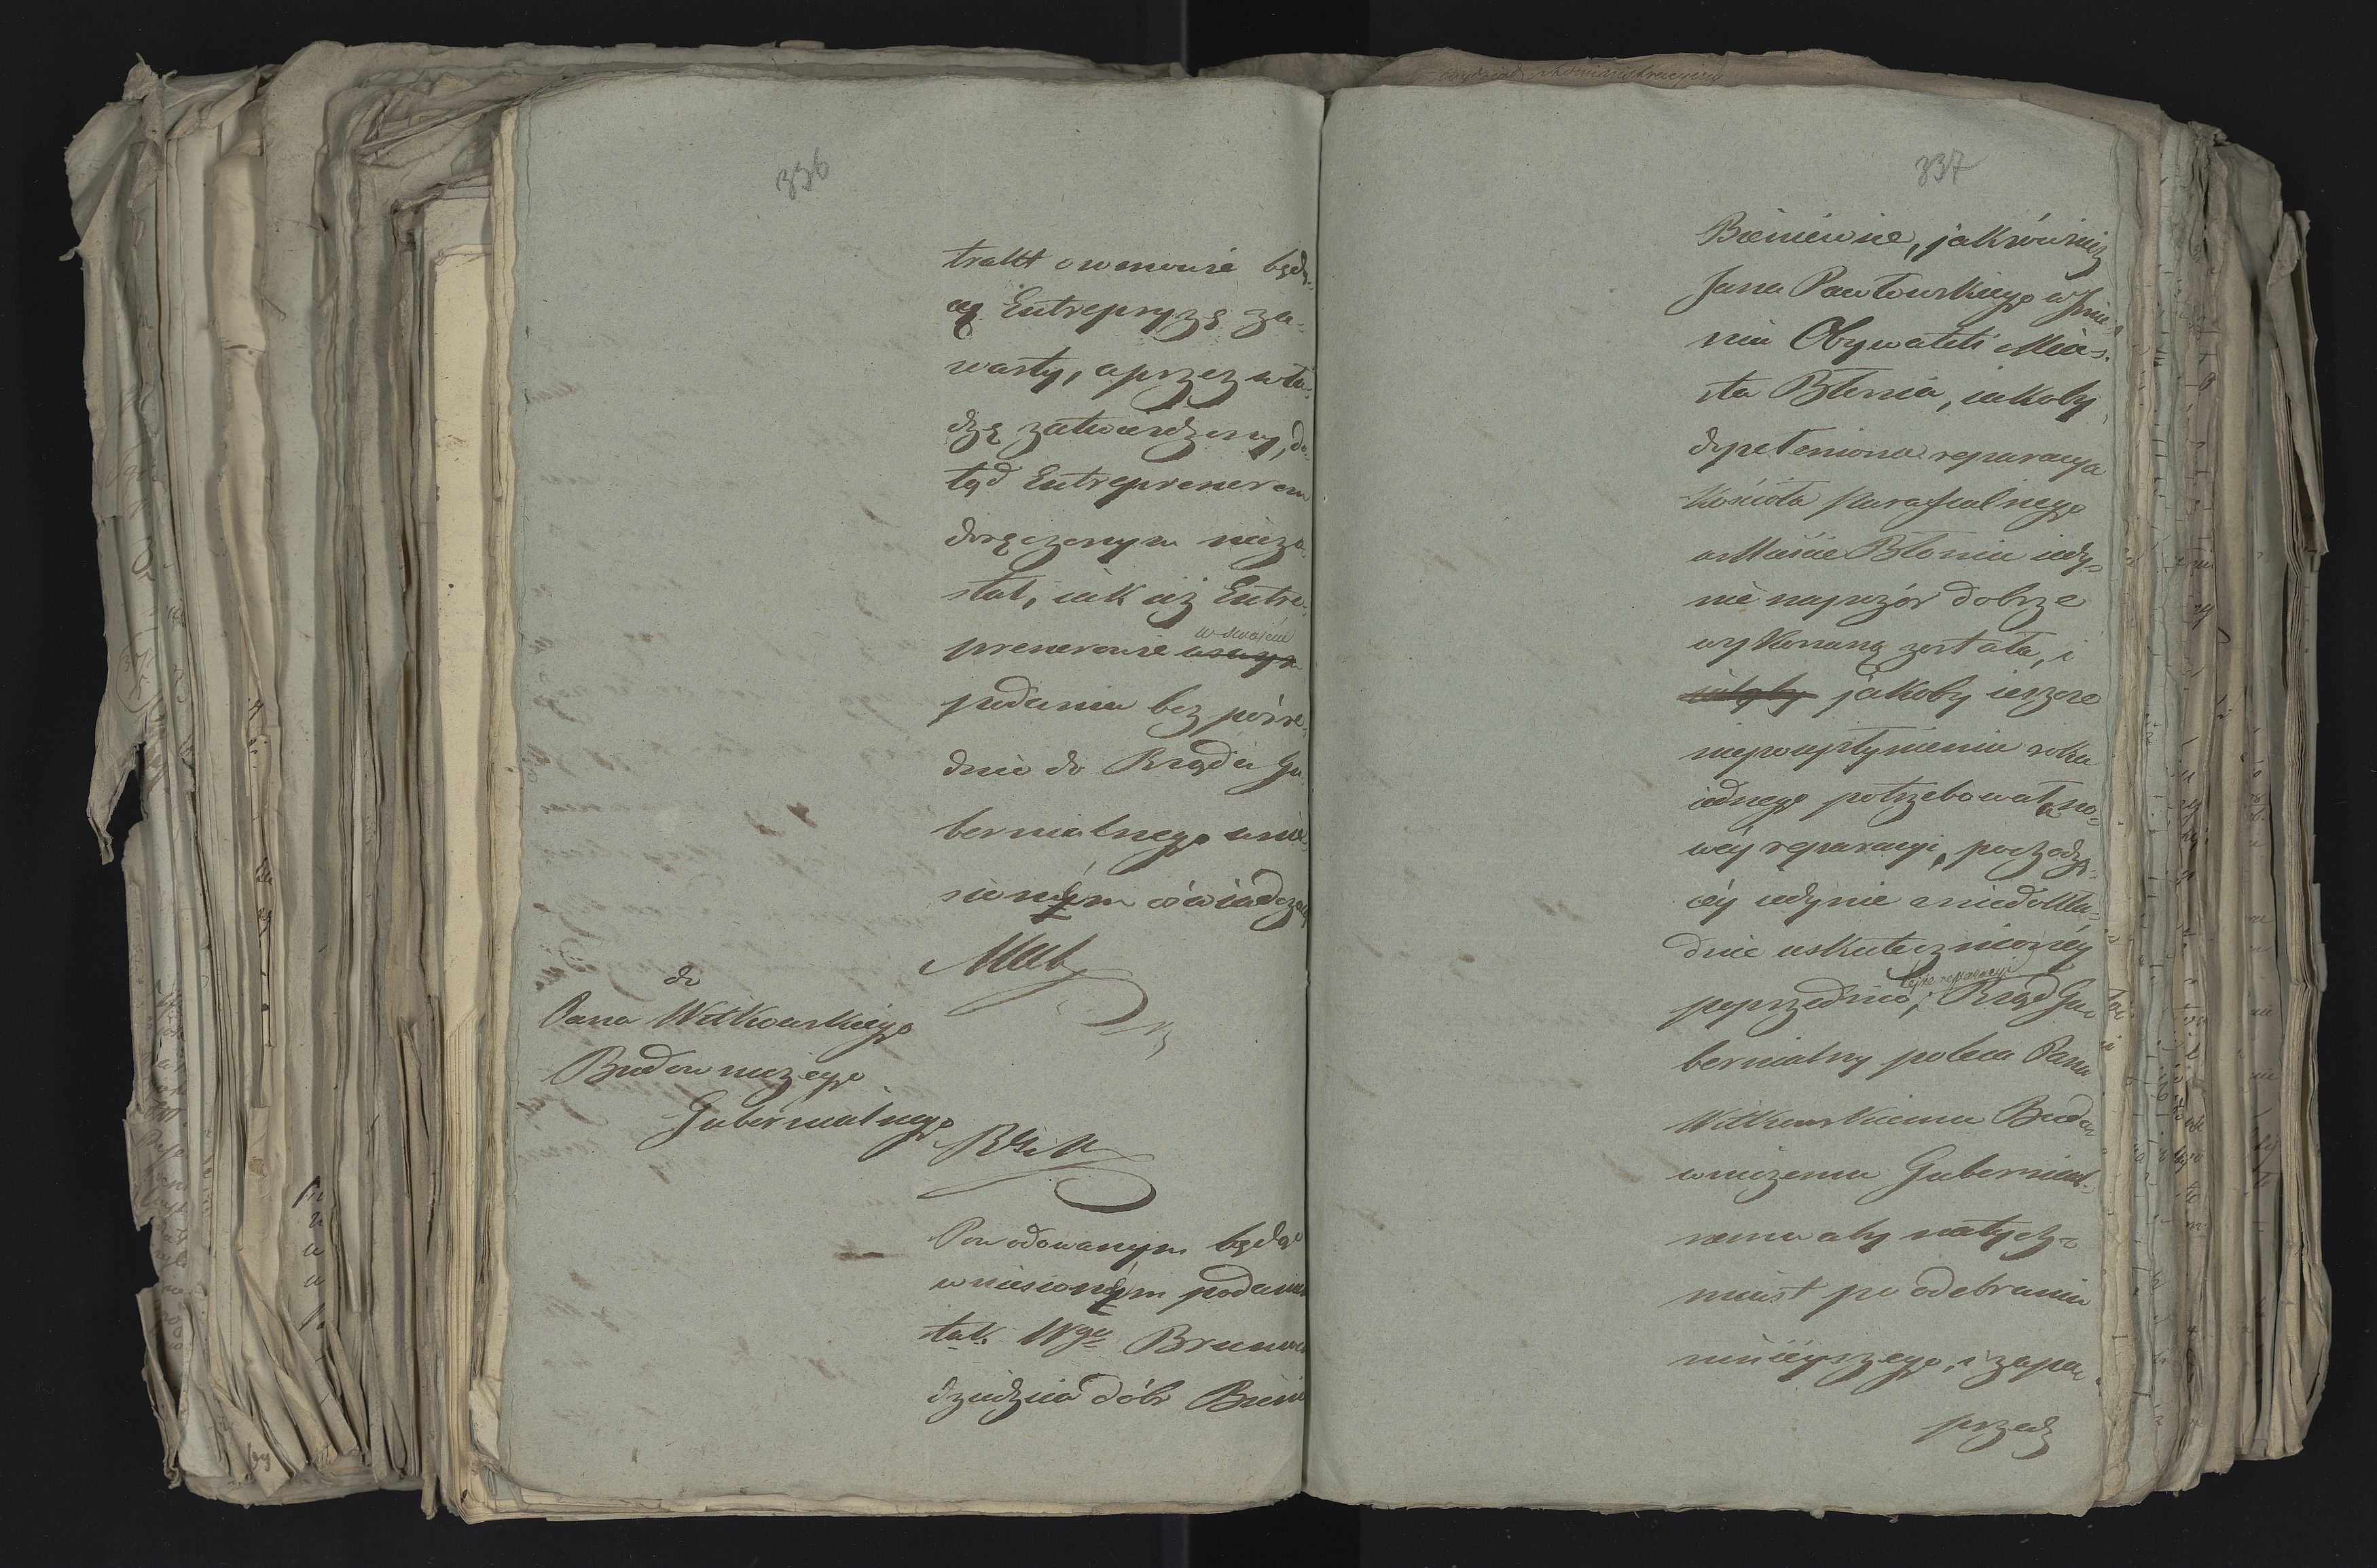 336
trakt o wmowie będą-
cą Entrepryzę za-
warty, a przez wła-
dzę zatwierdzony, do-
tąd Entreprenerom
doręczonym niezo-
stał, iak iż Entre-
prenerowie w swojém
podaniu bez pośre-
dnio do Rządu Gu
bernialnego wnie-
sioném oświadczają
do
Pana Witkowskiego
Budowniczego
Gubernialnego
Powodowanym będąc
wniesioném podaniem
tak Wgo
dziedzica dóbr Bienie
337
Bieniewice, jak również
Jana Pawłowskiego w Imie-
niu Obywateli Mia-
sta Błonia, iakoby
dopełniona reparacya
Kościoła parafialnego
w Mieście Błoniu iedy-
nie napozór dobrze
wykonaną została, i
jakoby ieszcze
niepoupłynieniu roku
iednego potrzebowała no-
wéy reparacyi, pochodzą-
céy iedynie z niedokła-
dnie uskutecznionéy
tejże reparacyi
poprzednio, Rząd Gu-
bernialny poleca Panu
Witkowskiemu Budo-
wniczemu Gubernial-
nemu aby natych-
miast po odebraniu
ninieyszego, i zapa-
przedz